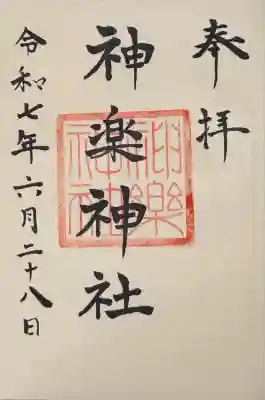 奉拝
神楽神社
令和七年六月二十八日